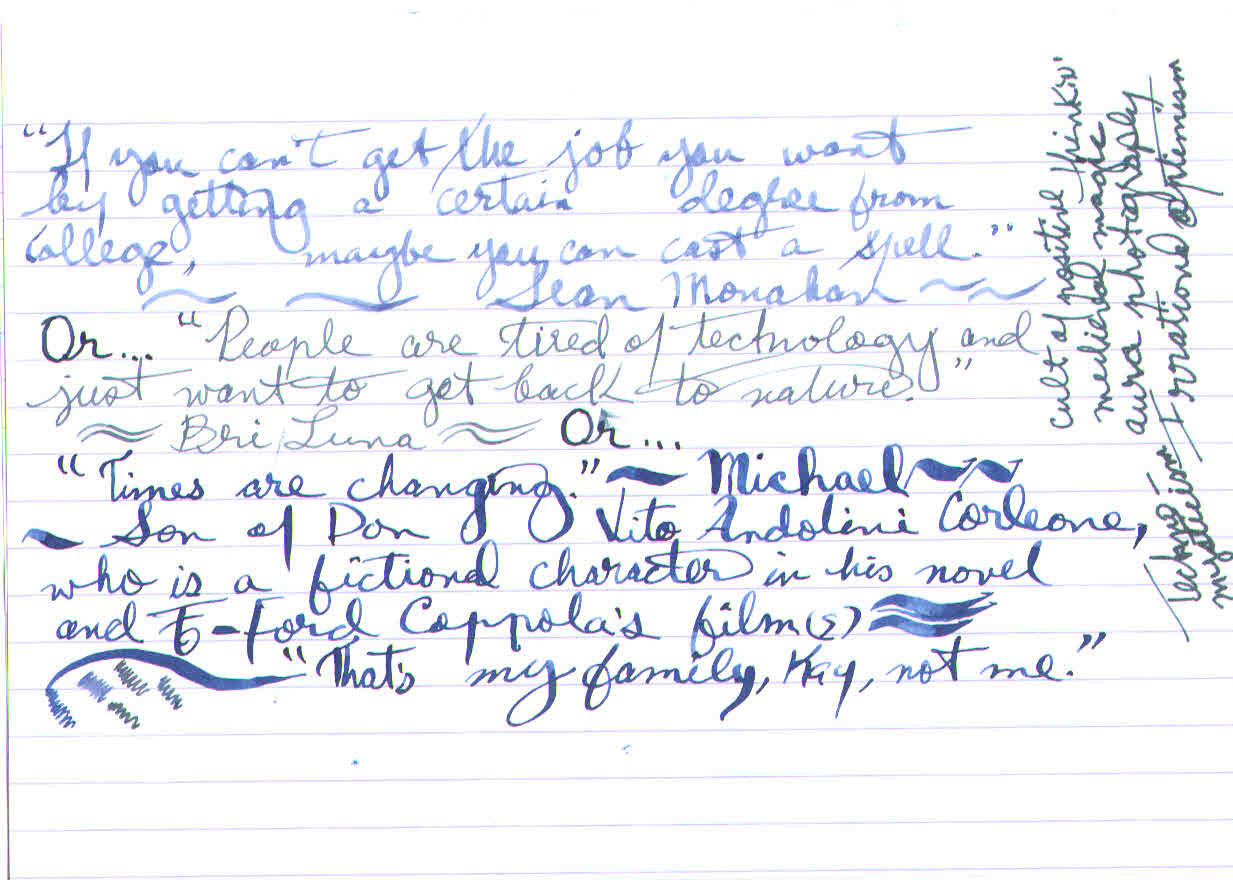 “If you can't get the job you want
by getting a certain degree from
college, maybe you can cast a spell.”
~ ~ Sean Monahan ~ ~
Or... “People are tired of technology and
just want to get back to nature.”
≈ Bri Luna ≈ Or...
“Times are changing.” ~ Michael ~ ~
~ Son of Don Vito Andolini Corleone,
who is a fictional character in his novel
and -Ford Coppola's film(s)
“That's my family, Kay, not me.”
cult of positive thinkin'
medieval magic
aura photography
Irrational optimism
techno-
mysticism